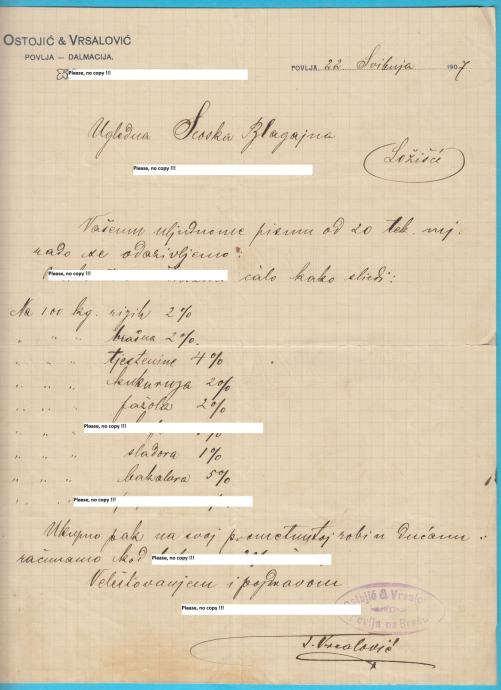 OSTOJIĆ & VRSALOVIĆ
POVLJA — DALMACIJA.
Please, no copy !!!
POVLJA 22 Svibnja 1907.
Ugledna Seoska Blagajna
Please, no copy !!!
Ložišće
Vašemu uljudnome pismu od 20 tek. mj.
rado se odazivljemo:
Please, no copy !!! kako sliedi:
Na 100 kg. rizih 2%
" " " brašna 2%.
" " " tjestenine 4%
" " " kukuruza 2%
" " " fažola 2%
" " " Please, no copy !!!
" " " sladora 1%
" " " bakalara 5%
" " Please, no copy !!!
Ukupno pak na svoj robi u dućanu
računamo kod Please, no copy !!!
Veleštovanjem i pozdravom
Please, no copy !!!
Ostojić & Vrsalović
Povlja na Braču
J. Vrsalović